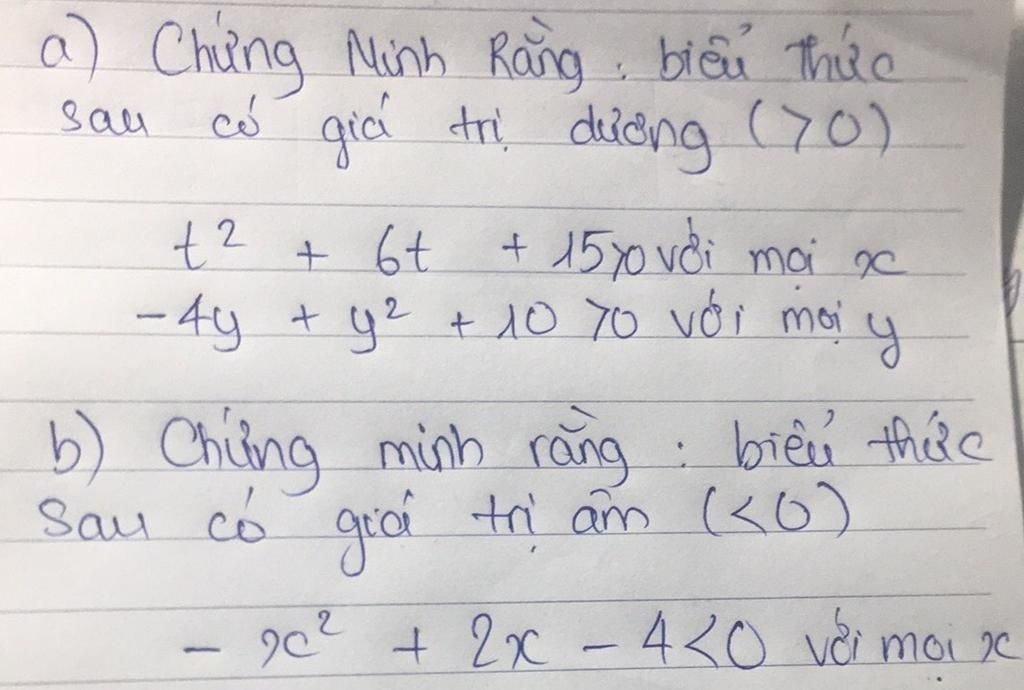 a) Chứng Minh Rằng : biểu thức
sau có giá trị dương (>0)
t² + 6t + 15>0 với mọi x
-4y + y² + 10 >0 với mọi y
b) Chứng minh rằng : biểu thức
sau có giá trị âm (<0)
- x² + 2x - 4<0 với mọi x